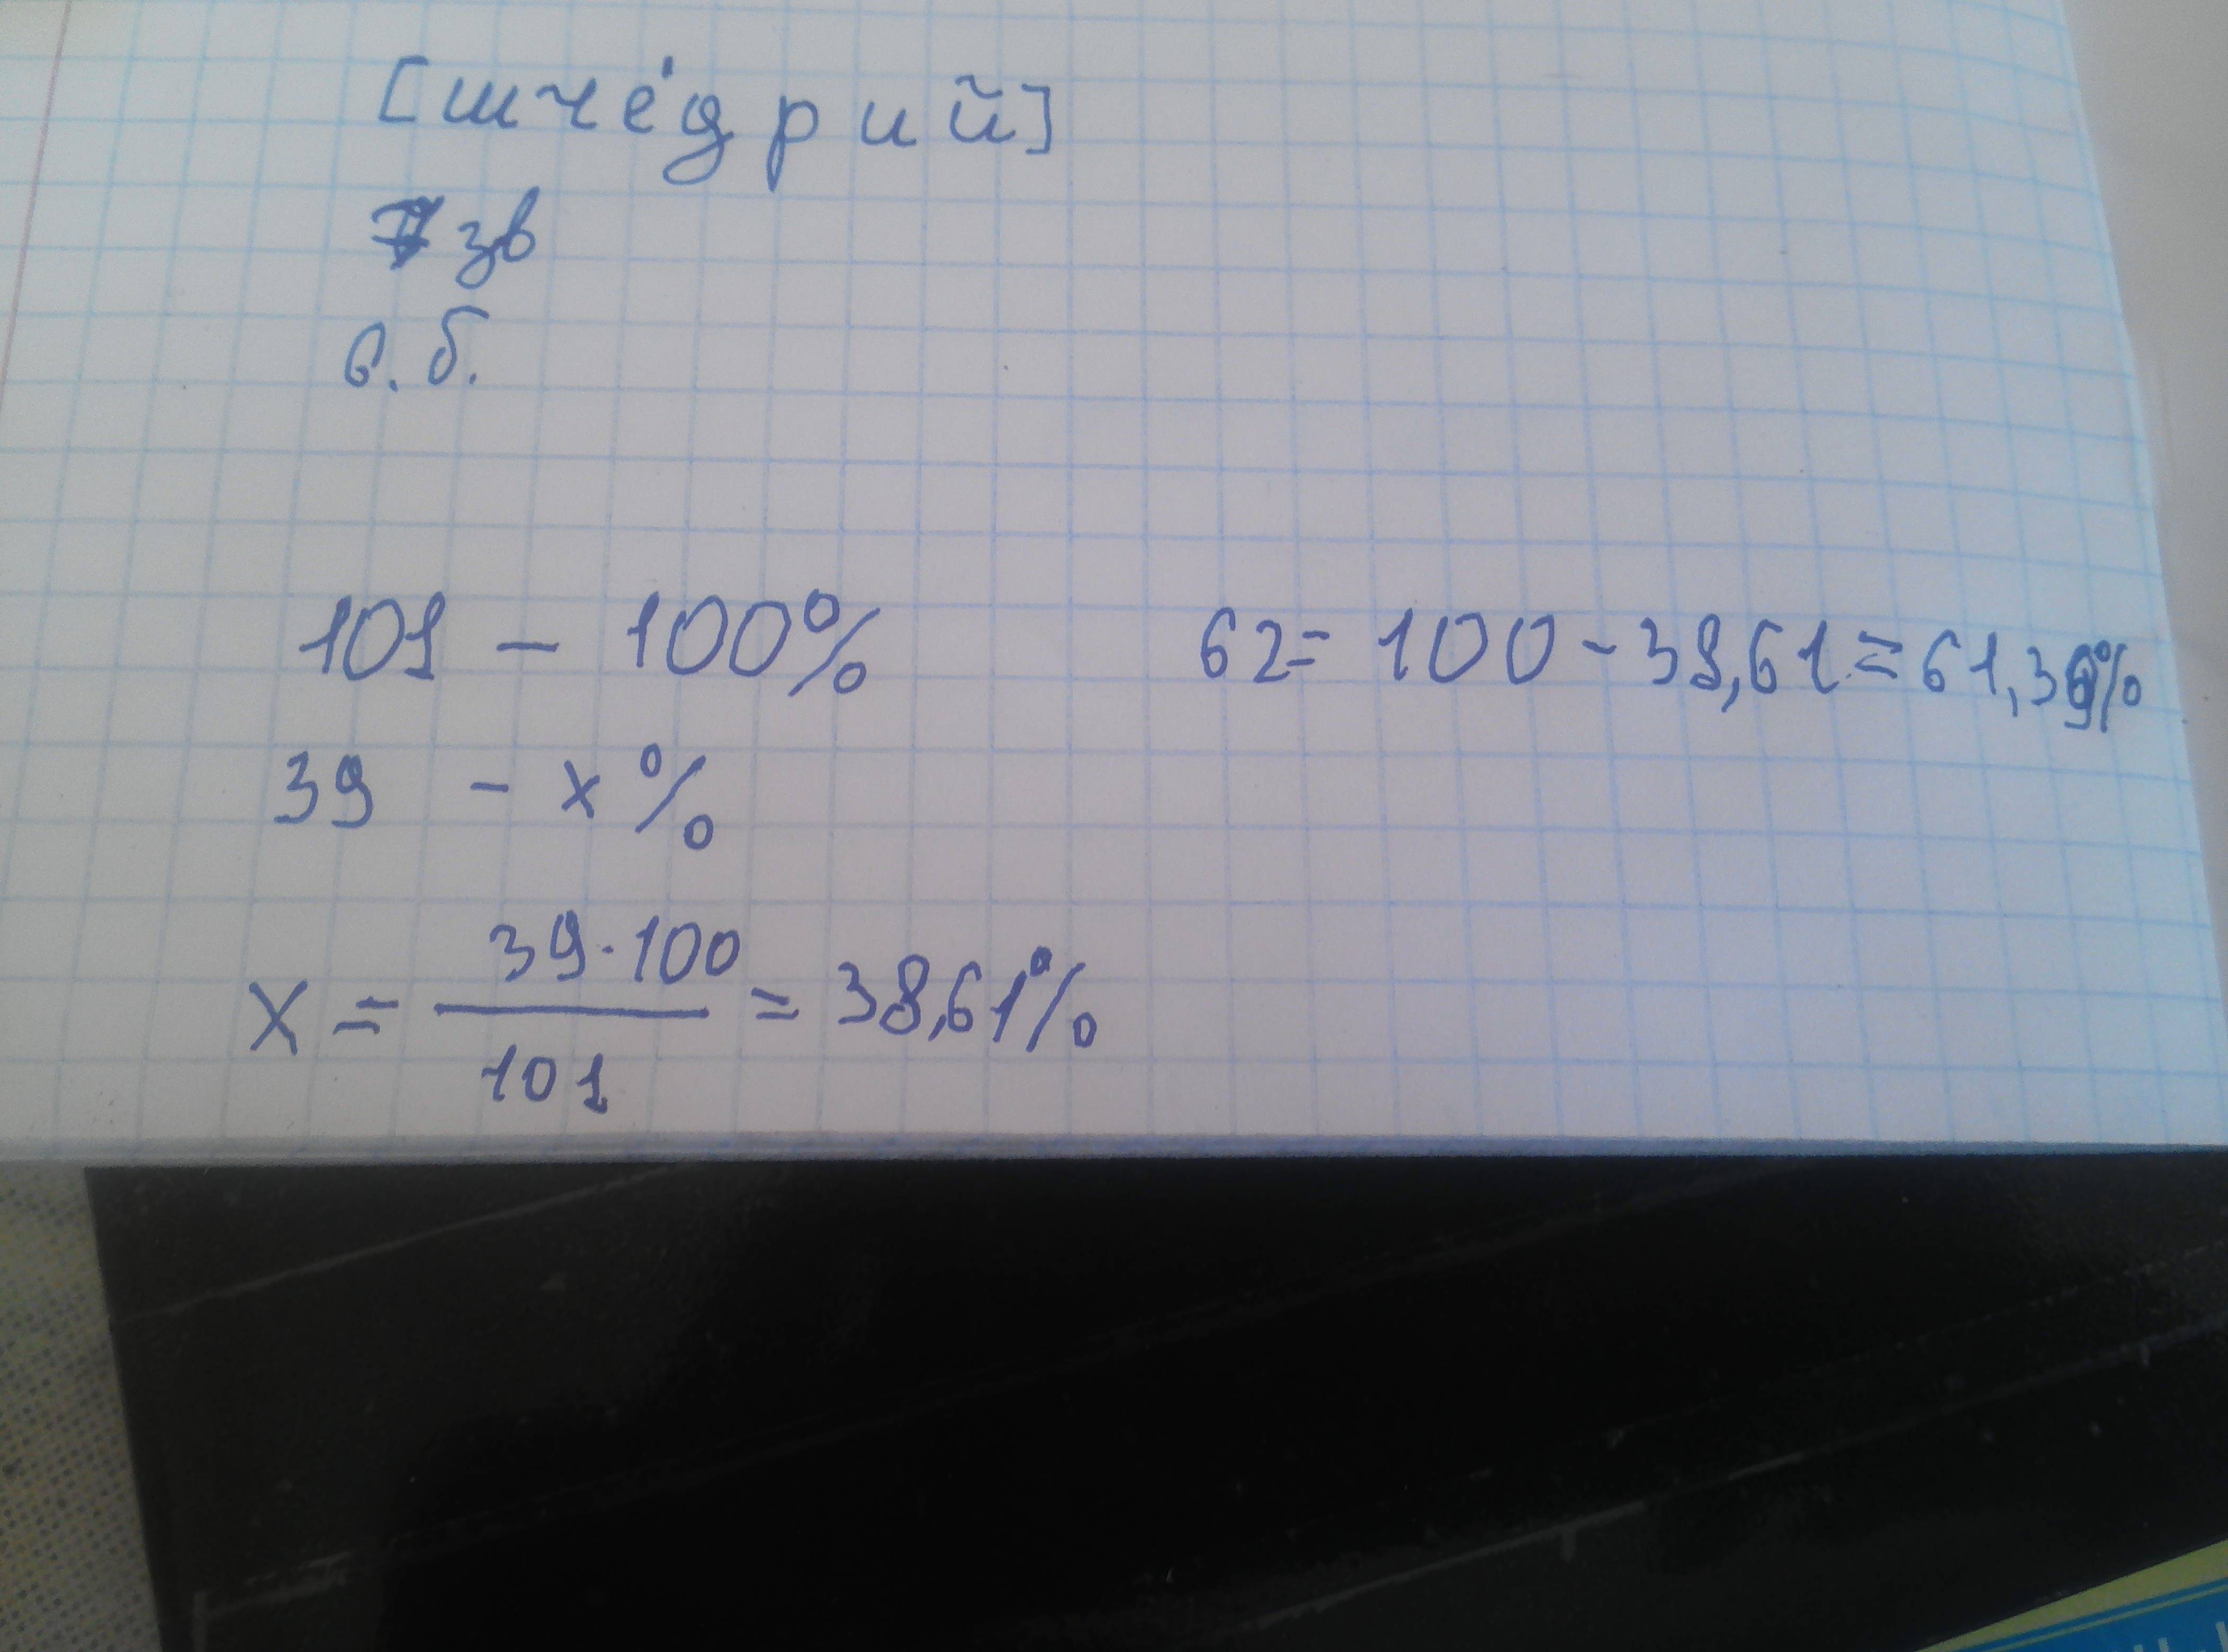 [шче́дрий]
7 зв
6. б.
101 – 100%
62 = 100 - 38,61 = 61,39%
39 - x %
x = 39·100 / 101 = 38,61%